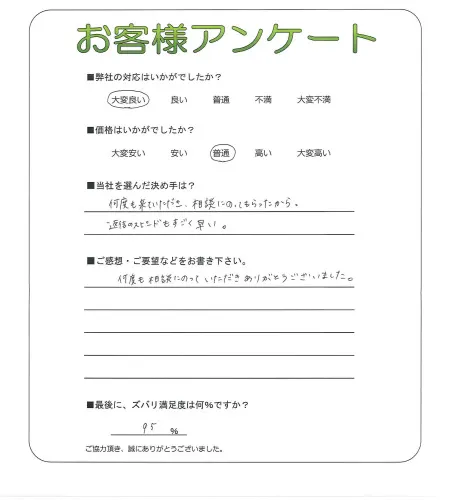 お客様アンケート
■弊社の対応はいかがでしたか？
大変良い 良い 普通 不満 大変不満
■価格はいかがでしたか？
大変安い 安い 普通 高い 大変高い
■当社を選んだ決め手は？
何度も来ていただき、相談にのってもらったから。
返信のスピードもすごく早い。
■ご感想・ご要望などをお書き下さい。
何度も相談にのっていただきありがとうございました。
■最後に、ズバリ満足度は何%ですか？
95 %
ご協力頂き、誠にありがとうございました。